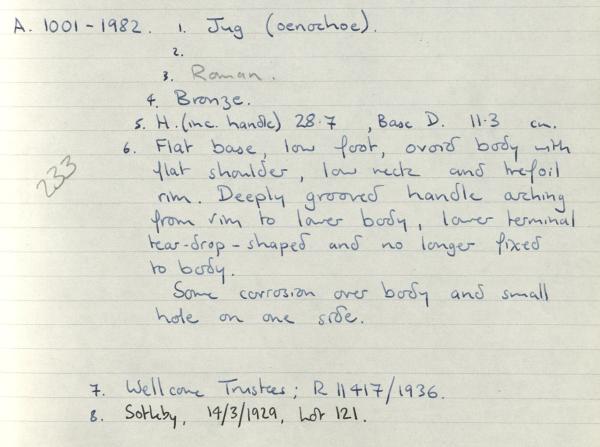 A. 1001-1982. 1. Jug (oenochoe).
2.
3. Roman.
4. Bronze.
5. H. (inc. handle) 28.7, Base D. 11.3 cm.
6. Flat base, low foot, ovoid body with
flat shoulder, low neck and trefoil
rim. Deeply grooved handle arching
from rim to lower body, lower terminal
tear-drop-shaped and no longer fixed
to body.
Some corrosion over body and small
hole on one side.
233
7. Wellcome Trustees; R 11417/1936.
8. Sotheby, 14/3/1929, Lot 121.